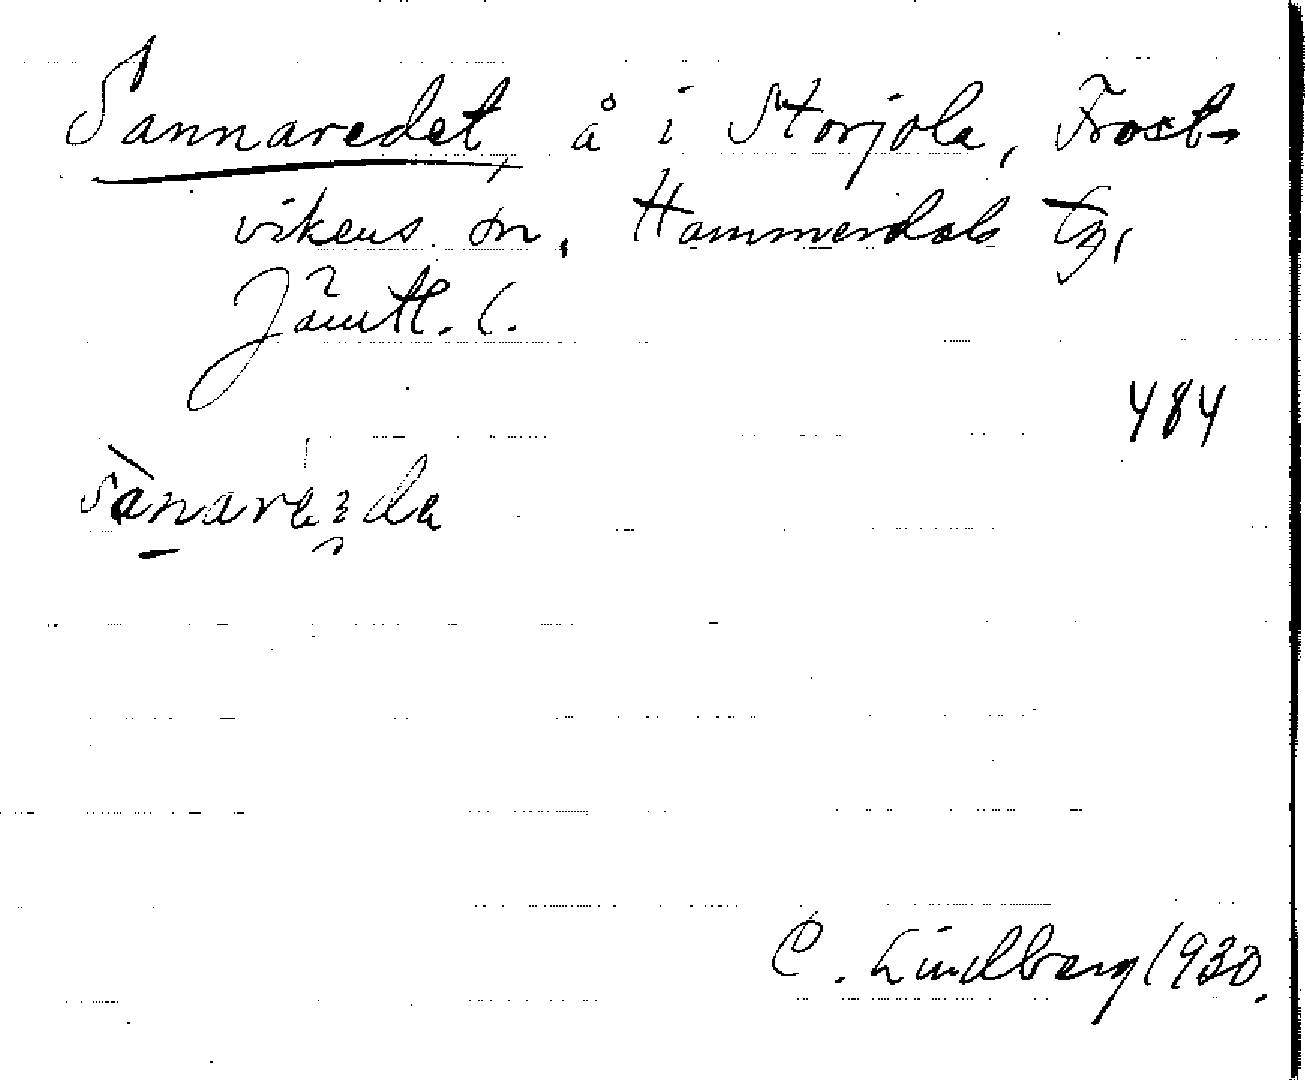 Sannaredet, å i Storjola, Frost-
vikens sn, Hammerdals tg,
Jämtl. l.
484
C. Lindberg 1930.